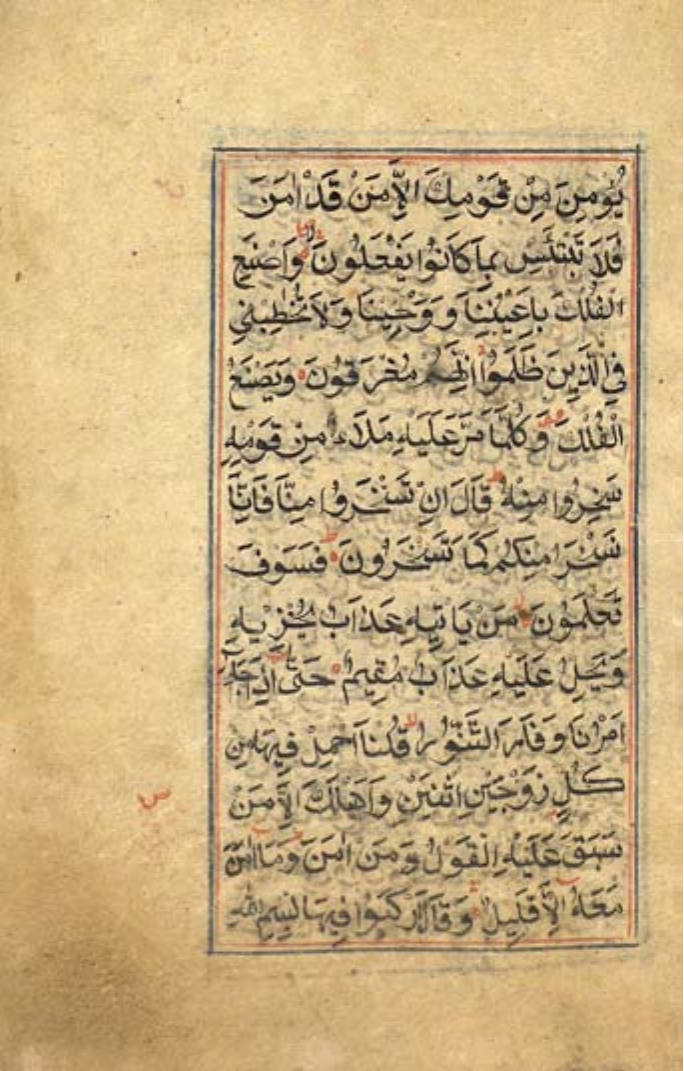 يُؤمِنَ مِنْ قَوْمِكَ اِلَّامَنْ قَدْ اٰمَنَ
فَلَا تَبْتَئِسْ بِمَا كَانُوْا يَفْعَلُوْنَ وَاصْنَعِ
الْفُلْكَ بِاَعْيُنِنَا وَوَحْيِنَا وَلَا تُخٰطِبْنِي
فِي الَّذِيْنَ ظَلَمُوْا اِنَّهُمْ مُغْرَقُوْنَ وَيَصْنَعُ
الْفُلْكَ وَكُلَّمَا مَرَّ عَلَيْهِ مَلَاءٌ مِنْ قَوْمِهِ
سَخِرُوا مِنْهُ قَالَ اِنْ تَسْخَرُوا مِنَّا فَاِنَّا
نَسْخَرُ مِنْكُمْ كَمَا تَسْخَرُوْنَ فَسَوْفَ
تَعْلَمُوْنَ مَنْ يَاْتِيْهِ عَذَابٌ يُخْزِيْهِ
وَيَحِلُّ عَلَيْهِ عَذَابٌ مُقِيْمٌ حَتّٰى اِذَا جَآءَ
اَمْرُنَا وَفَارَ التَّنُّوْرُ قُلْنَا احْمِلْ فِيْهَا مِنْ
كُلٍّ زَوْجَيْنِ اثْنَيْنِ وَاَهْلَكَ اِلَّا مَنْ
سَبَقَ عَلَيْهِ الْقَوْلُ وَمَنْ اٰمَنَ وَمَا اٰمَنَ
مَعَهُ اِلَّا قَلِيْلٌ وَقَالَ ارْكَبُوْا فِيْهَا بِسْمِ اللهِ